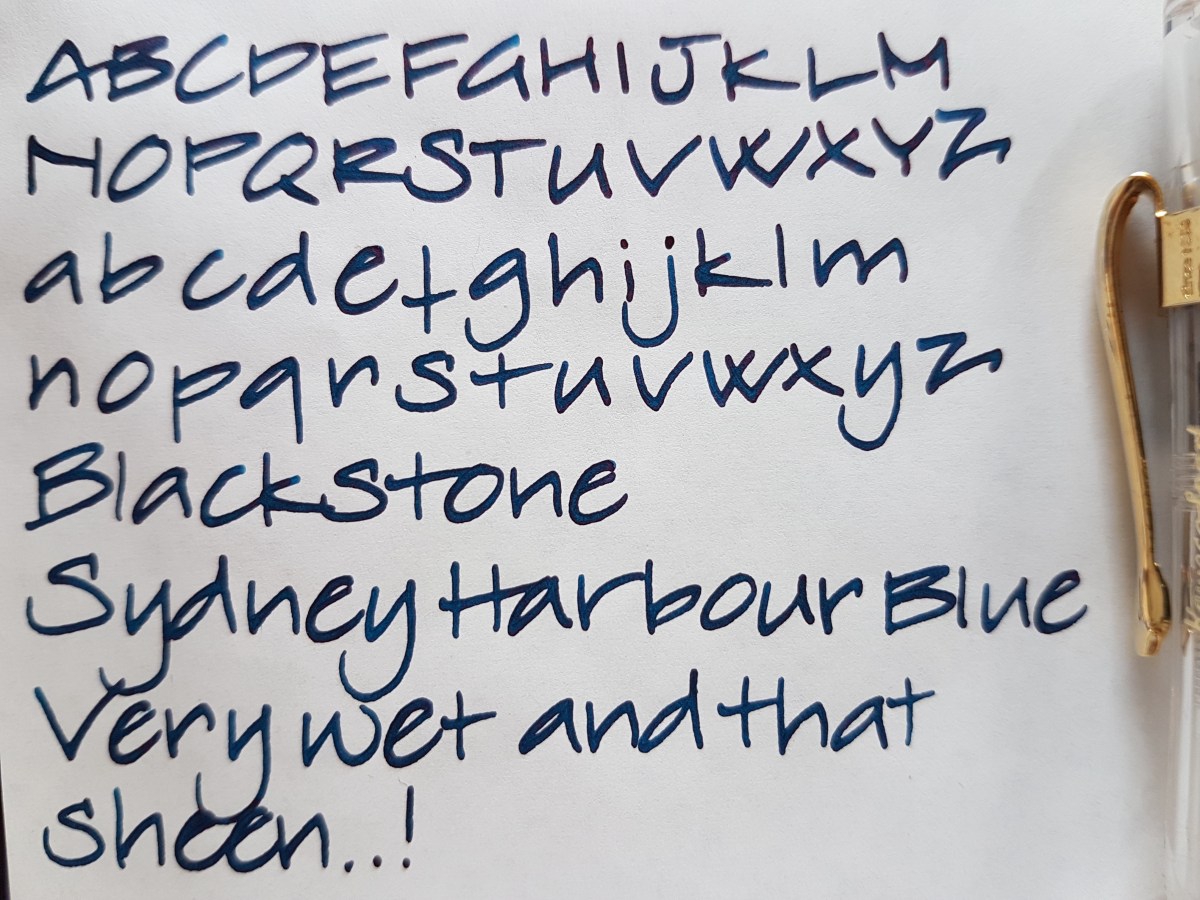 ABCDEFGHIJKLM
NOPQRSTUVWXYZ
abcdefghijklm
nopqrstuvwxyz
Blackstone
Sydney Harbour Blue
Very wet and that
sheen..!